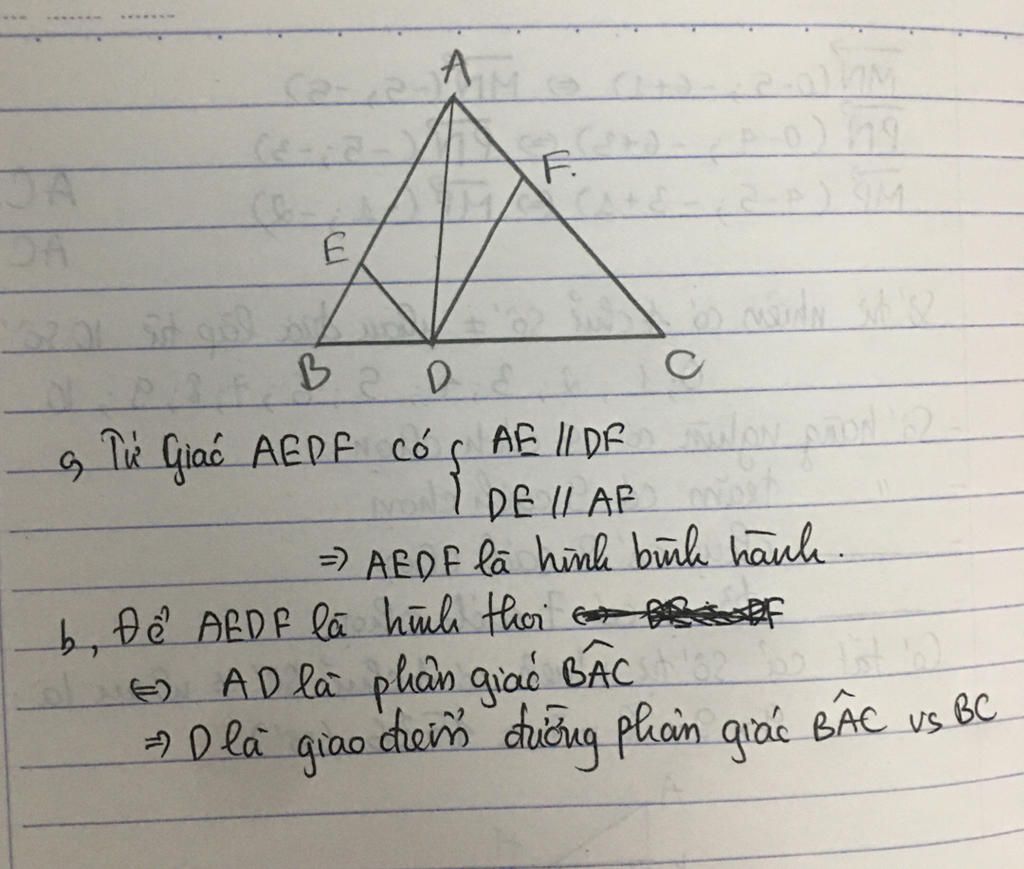 A
F.
E
B D C
a, Tứ Giác AEDF có { AE // DF
DE // AF
=> AEDF là hình bình hành.
b, Để AEDF là hình thoi
<=> AD là phân giác BÂC
=> D là giao điểm đường phân giác BÂC vs BC